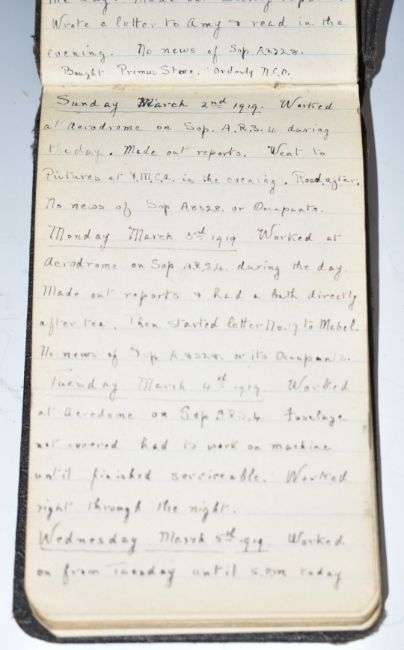 the day. Made out
Wrote a letter to Amy & read in the
evening. No news of Sop. A8328.
Bought Primus Stove. Orderly N.C.O.
Sunday March 2nd 1919. Worked
at Aerodrome on Sop. A.R.S. 4 during
the day. Made out reports. Went to
Pictures at Y.M.C.A. in the evening. Read after.
No news of Sop A8328. or Occupants.
Monday March 3rd 1919 Worked at
Aerodrome on Sop A.R.S.4. during the day.
Made out reports & had a bath directly
after tea. Then started letter No. 17 to Mabel.
No news of Sop A8328. or its Occupants.
Tuesday March 4th 1919. Worked
at Aerodome on Sop A.R.S.4 Fuselage
not covered had to work on machine
until finished serviceable. Worked
right through the night.
Wednesday March 5th 1919 Worked
on from Tuesday until 5.PM today